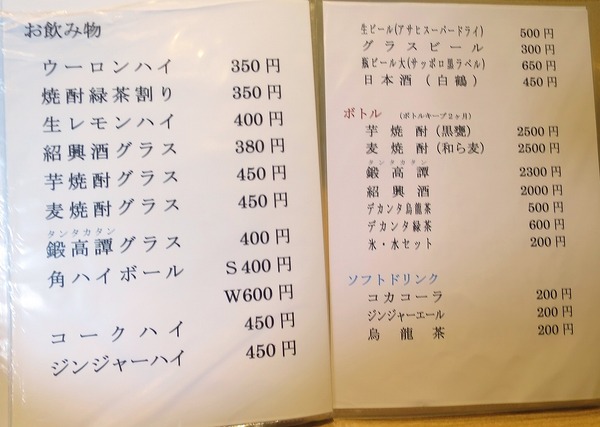 お飲み物
ウーロンハイ 350円
焼酎緑茶割り 350円
生レモンハイ 400円
紹興酒グラス 380円
芋焼酎グラス 450円
麦焼酎グラス 450円
タンタカタン
鍛高譚グラス 400円
角ハイボール S400円
W600円
コークハイ 450円
ジンジャーハイ 450円
生ビール(アサヒスーパードライ) 500円
グラスビール 300円
瓶ビール大(サッポロ黒ラベル) 650円
日本酒(白鶴) 450円
ボトル (ボトルキープ2ヶ月)
芋焼酎(黒甕) 2500円
麦焼酎(和ら麦) 2500円
タンタカタン
鍛高譚 2300円
紹興酒 2000円
デカンタ烏龍茶 500円
デカンタ緑茶 600円
氷・水セット 200円
ソフトドリンク
コカコーラ 200円
ジンジャーエール 200円
烏龍茶 200円